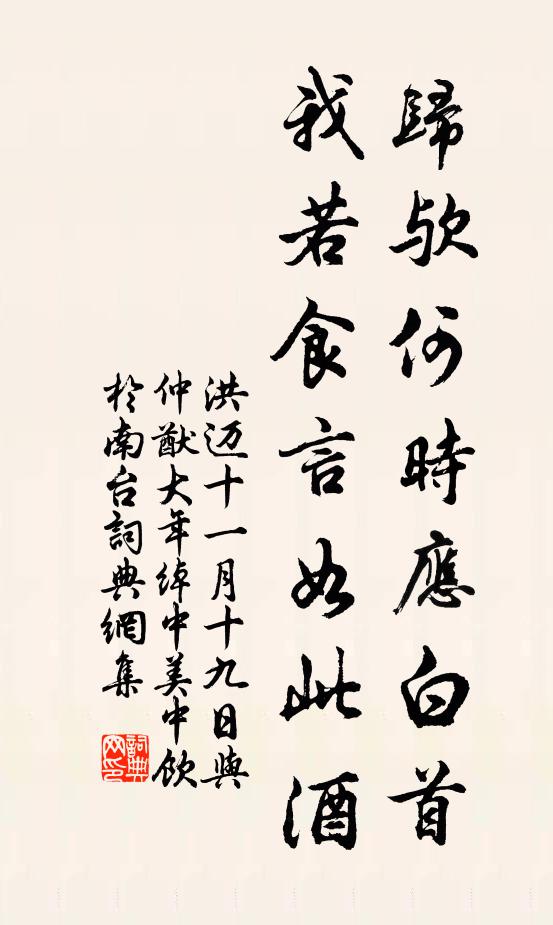 歸歟何時應白首
我若食言如此酒
洪迈十一月十九日與
仲猷大年綽中美中飲
於南台詞典網集
詞典網印